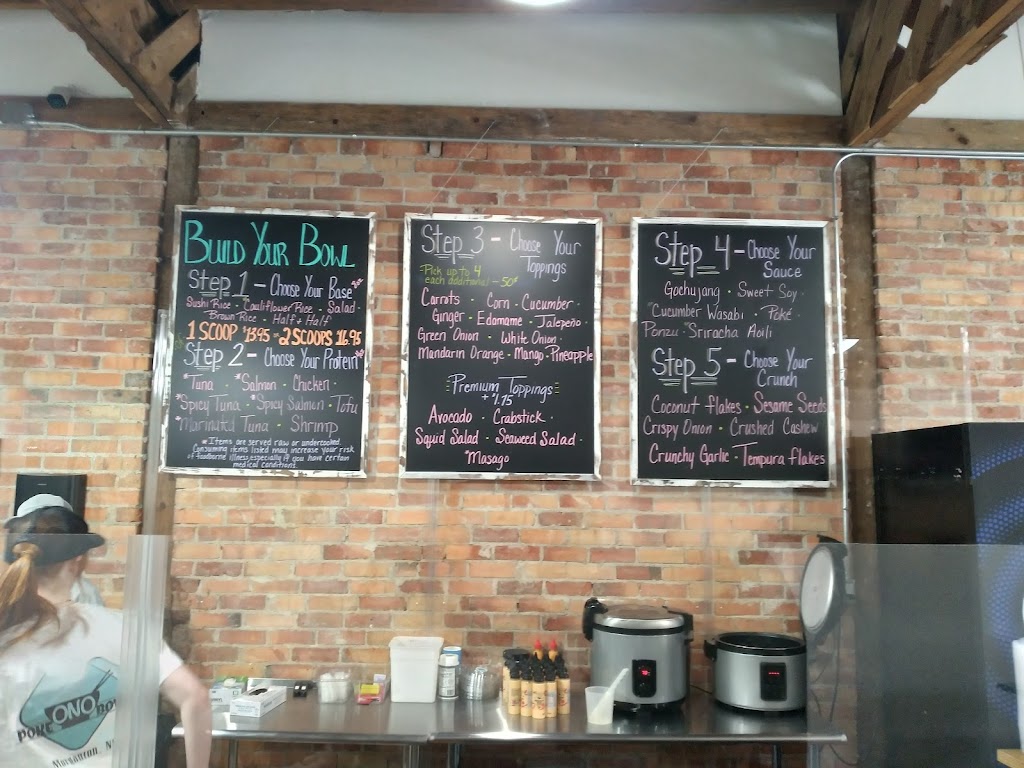 BUILD YOUR BOWL
Step 1 - Choose Your Base
Sushi Rice · Cauliflower Rice · Salad ·
Brown Rice · Half + Half
1 SCOOP $13.95 - 2 SCOOPS 16.95
Step 2 - Choose Your Protein
*Tuna · *Salmon · Chicken ·
*Spicy Tuna · *Spicy Salmon · Tofu
*Marinated Tuna · Shrimp
*Items are served raw or undercooked.
Consuming items listed may increase your risk
of foodborne illness, especially if you have certain
medical conditions.
Step 3 - Choose Your
Toppings
Pick up to 4
each additional - 50¢
Carrots · Corn · Cucumber ·
Ginger · Edamame · Jalepeño ·
Green Onion · White Onion ·
Mandarin Orange · Mango · Pineapple
Premium Toppings
+ $1.75
Avocado · Crabstick ·
Squid Salad · Seaweed Salad ·
*Masago
Step 4 - Choose Your
Sauce
Gochujang · Sweet Soy ·
Cucumber Wasabi · Poké ·
Ponzu · Sriracha Aoili
Step 5 - Choose Your
Crunch
Coconut flakes · Sesame Seeds
Crispy Onion · Crushed Cashew
Crunchy Garlic · Tempura flakes
POKE ONO
Morganton, N